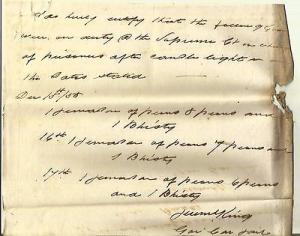 I do hereby certify that the following
were on duty @ the Supreme Ct in charge
of prisoners after candle light on
the Dates stated
Decr 15th/58
1 Jemadar of peons 8 peons and
1 Bhisty
16th 1 Jemadar of peons 7 peons and
1 Bhisty
17th 1 Jemadar of peons 6 peons
and 1 Bhisty
King